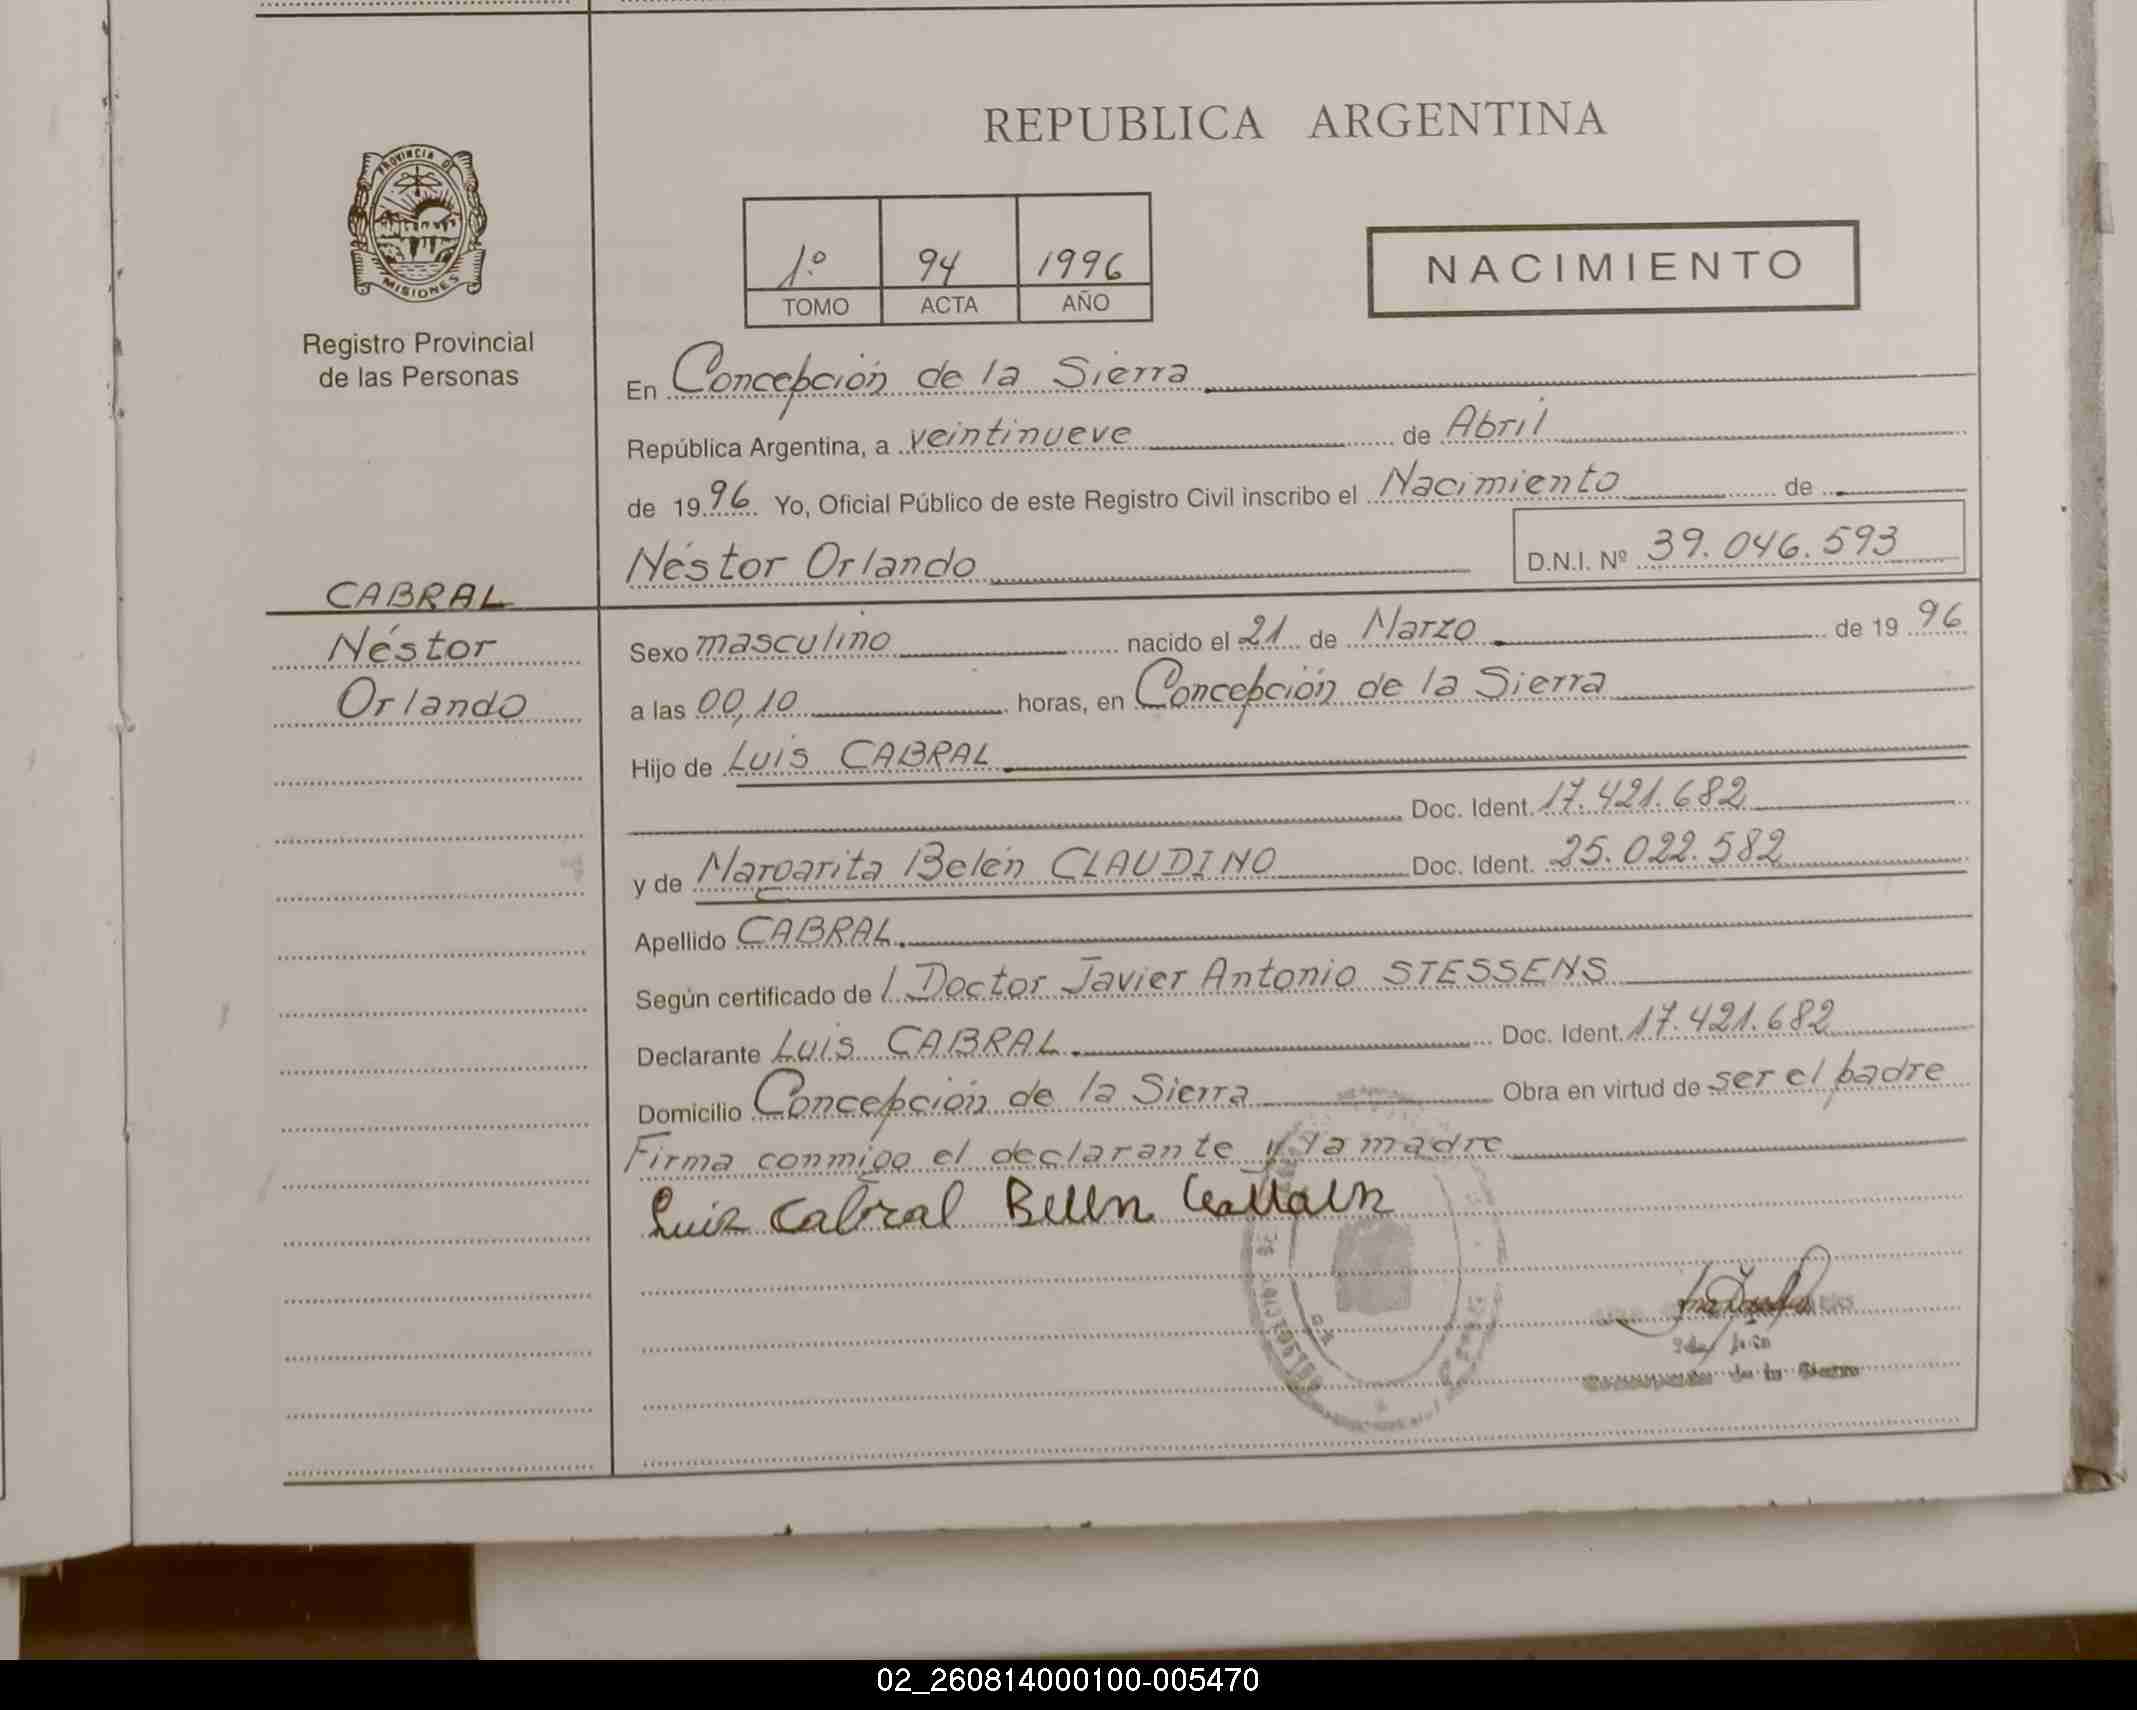 REPUBLICA ARGENTINA
PROVINCIA DE
MISIONES
Registro Provincial
de las Personas
1º 94 1996
TOMO ACTA AÑO
NACIMIENTO
En Concepción de la Sierra
República Argentina, a veintinueve de Abril
de 1996 Yo, Oficial Público de este Registro Civil inscribo el Nacimiento de
Néstor Orlando D.N.I. Nº 39.046.593
CABRAL
Néstor
Orlando
Sexo masculino nacido el 21 de Marzo de 1996
a las 00,10 horas, en Concepción de la Sierra
Hijo de Luis CABRAL
Doc. Ident. 17.421.682
y de Margarita Belén CLAUDINO Doc. Ident. 25.022.582
Apellido CABRAL
Según certificado de l Doctor Javier Antonio STESSENS
Declarante Luis CABRAL Doc. Ident. 17.421.682
Domicilio Concepción de la Sierra Obra en virtud de ser el padre
Firma conmigo el declarante y la madre
Luis Cabral Belen
de la Sierra
02_260814000100-005470